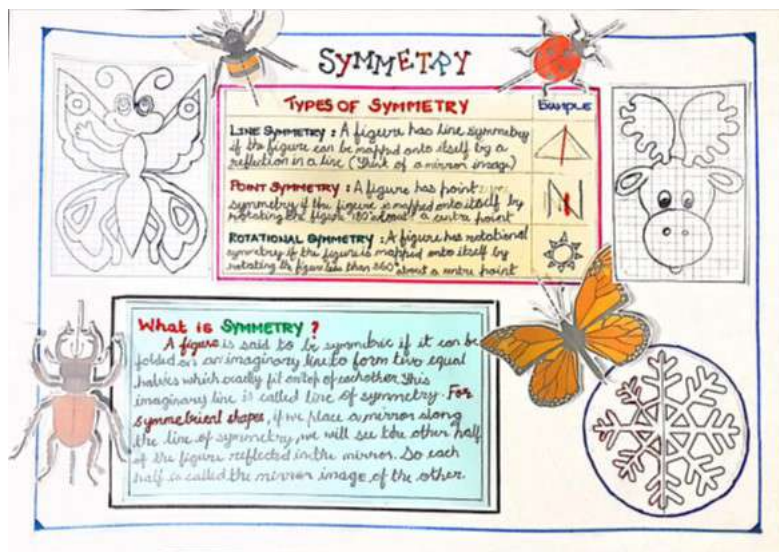 SYMMETRY
TYPES OF SYMMETRY
EXAMPLE
LINE SYMMETRY : A figure has line symmetry
if the figure can be mapped onto itself by a
reflection in a line (Think of a mirror image)
POINT SYMMETRY : A figure has point
symmetry if the figure is mapped onto itself by
rotating the figure 180° about a centre point
N
ROTATIONAL SYMMETRY : A figure has rotational
symmetry if the figure is mapped onto itself by
rotating the figure less than 360° about a centre point
What is SYMMETRY ?
A figure is said to be symmetric if it can be
folded on an imaginary line to form two equal
halves which exactly fit on top of each other. This
imaginary line is called line of symmetry. For
symmetrical shapes, if we place a mirror along
the line of symmetry, we will see the other half
of the figure reflected in the mirror. So each
half is called the mirror image of the other.